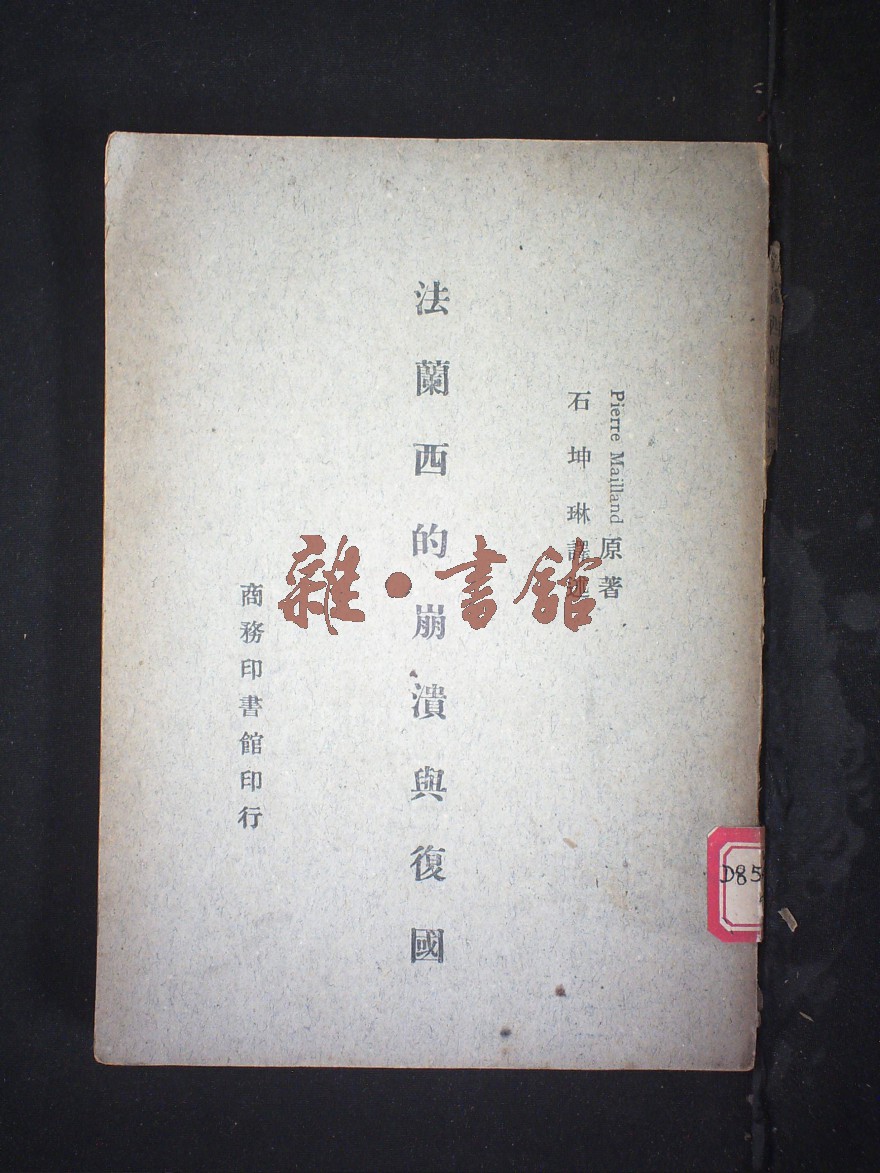 Pierre Mailland 原著
石坤琳譯述
法蘭西的崩潰與復國
商務印書館印行
雜·書館
D85